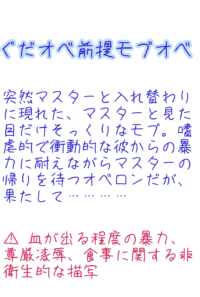 ぐだオベ前提モブオベ
突然マスターと入れ替わり
に現れた、マスターと見た
目だけそっくりなモブ。嗜
虐的で衝動的な彼からの暴
力に耐えながらマスターの
帰りを待つオベロンだが、
果たして…………
⚠ 血が出る程度の暴力、
尊厳凌辱、食事に関する非
衛生的な描写